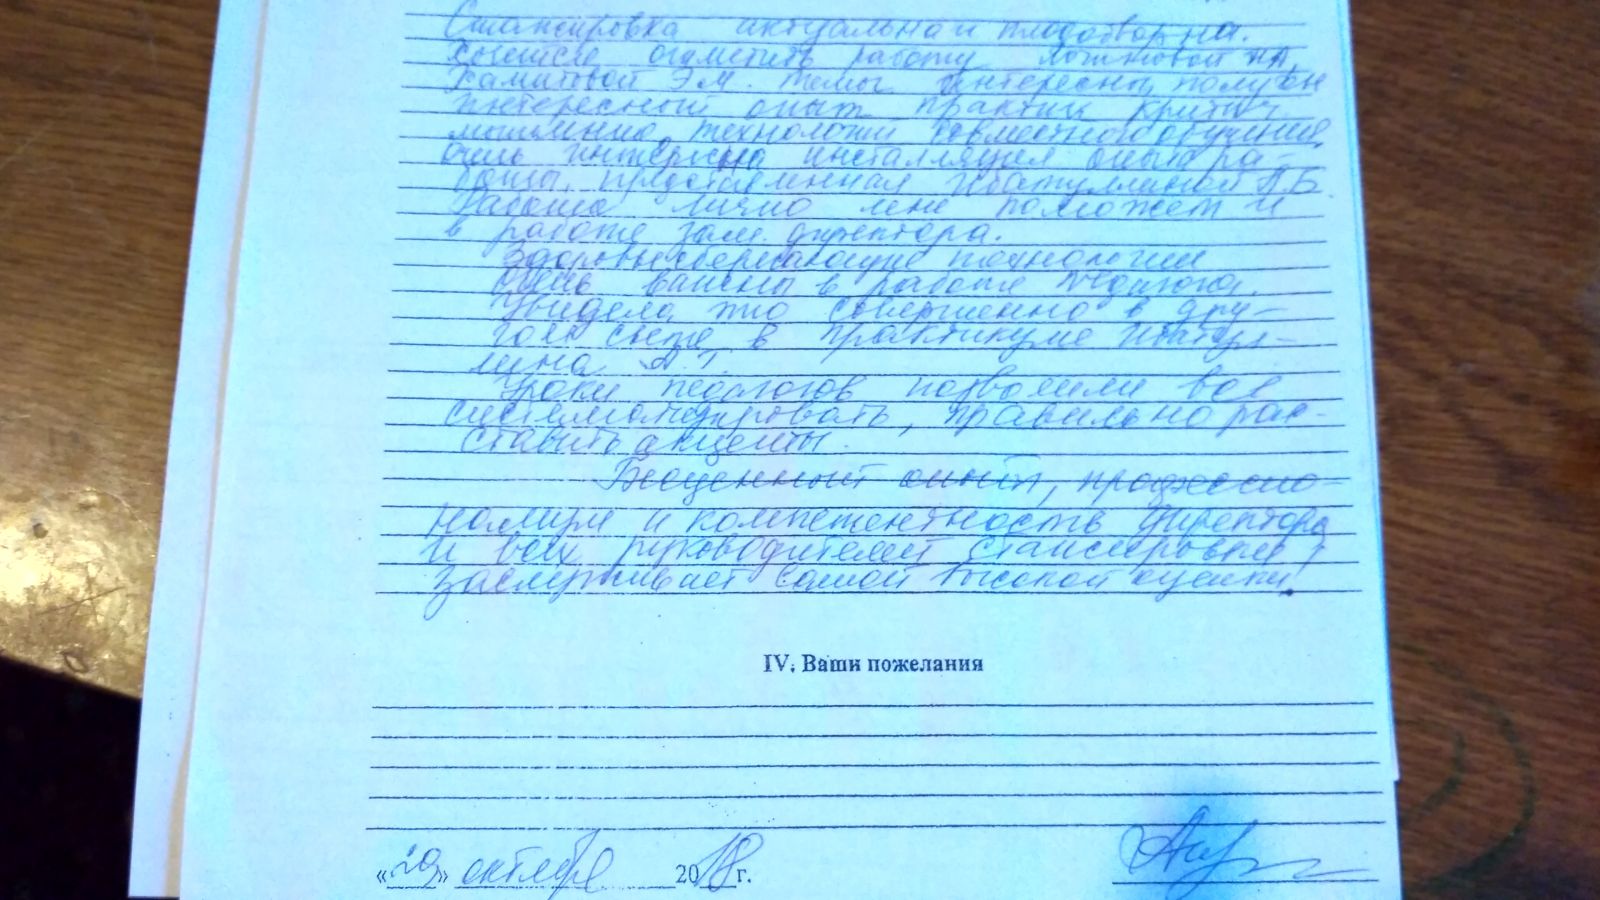 Стажировка актуальна и плодотворна.
Хочется отметить работу Логиновой НА,
Хамитовой Э.М. Темы интересны, получен
интересный опыт практик критич.
мышления, технологии совместного обучения,
очень интересна инсталляция опыта ра-
боты, представленная Ибатуллиной А.Б.
Работа лично мне поможет и
в работе зам. директора.
Здоровьесберегающие технологии
очень важны в работе педагога.
Увидела это совершенно в дру-
гом свете в практикуме Ибатул-
лина
Уроки педагогов позволили все
систематизировать, правильно рас-
ставить акценты.
Бесценный опыт, профессио-
нализм и компетентность директора
и всех руководителей стажировки
заслуживает самой высокой оценки.
IV. Ваши пожелания
« » октября 2018 г.